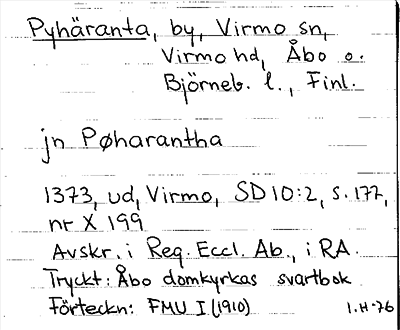 Pyhäranta, by, Virmo sn,
Virmo hd, Åbo o.
Björneb. l., Finl.
jn Pøharantha
1373, ud, Virmo, SD 10:2, s. 177,
nr X 199
Avskr. i Reg. Eccl. Ab., i RA.
Tryckt: Åbo domkyrkas svartbok
Förteckn: FMU I (1910)
1.H-76